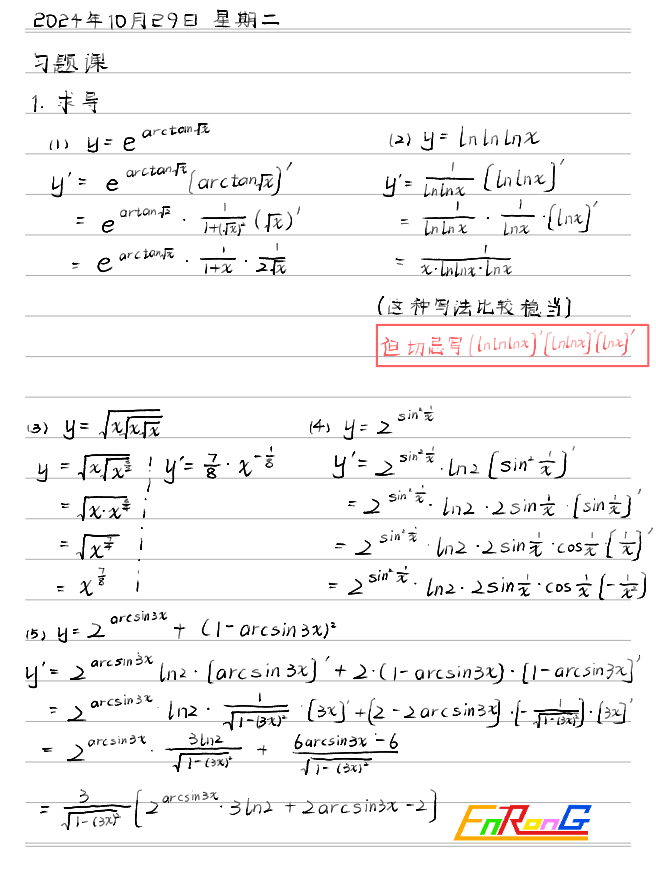 2024年10月29日 星期二
习题课
1. 求导
(1) y = e^{arctan√x}
y' = e^{arctan√x} [arctan√x]'
= e^{artan√x} · 1/(1+(√x)²) (√x)'
= e^{arctan√x} · 1/(1+x) · 1/(2√x)
(2) y = ln ln ln x
y' = 1/(lnlnx) [lnlnx]'
= 1/(lnlnx) · 1/(lnx) · [lnx]'
= 1/(x·lnlnx·lnx)
(这种写法比较稳当)
但切忌写 (lnlnlnx)'[lnlnx]'[lnx]'
(3) y = √(x√(x√x))
y = √(x√(x^{3/2})) ¦ y' = 7/8 · x^{-1/8}
= √(x·x^{3/4}) ¦
= √(x^{7/4}) ¦
= x^{7/8} ¦
(4) y = 2^{sin² 1/x}
y' = 2^{sin² 1/x} · ln2 [sin² 1/x]'
= 2^{sin² 1/x} · ln2 · 2sin 1/x · [sin 1/x]'
= 2^{sin² 1/x} · ln2 · 2sin 1/x · cos 1/x [1/x]'
= 2^{sin² 1/x} · ln2 · 2sin 1/x · cos 1/x [-1/x²]
(5) y = 2^{arcsin3x} + (1-arcsin3x)²
y' = 2^{arcsin3x} ln2 · [arcsin3x]' + 2·(1-arcsin3x)·[1-arcsin3x]'
= 2^{arcsin3x} · ln2 · 1/√(1-(3x)²) · [3x]' + [2-2arcsin3x]·[-1/√(1-(3x)²)]·[3x]'
= 2^{arcsin3x} · 3ln2/√(1-(3x)²) + (6arcsin3x-6)/√(1-(3x)²)
= 3/√(1-(3x)²) [2^{arcsin3x} · 3ln2 + 2arcsin3x - 2]
EnRonG